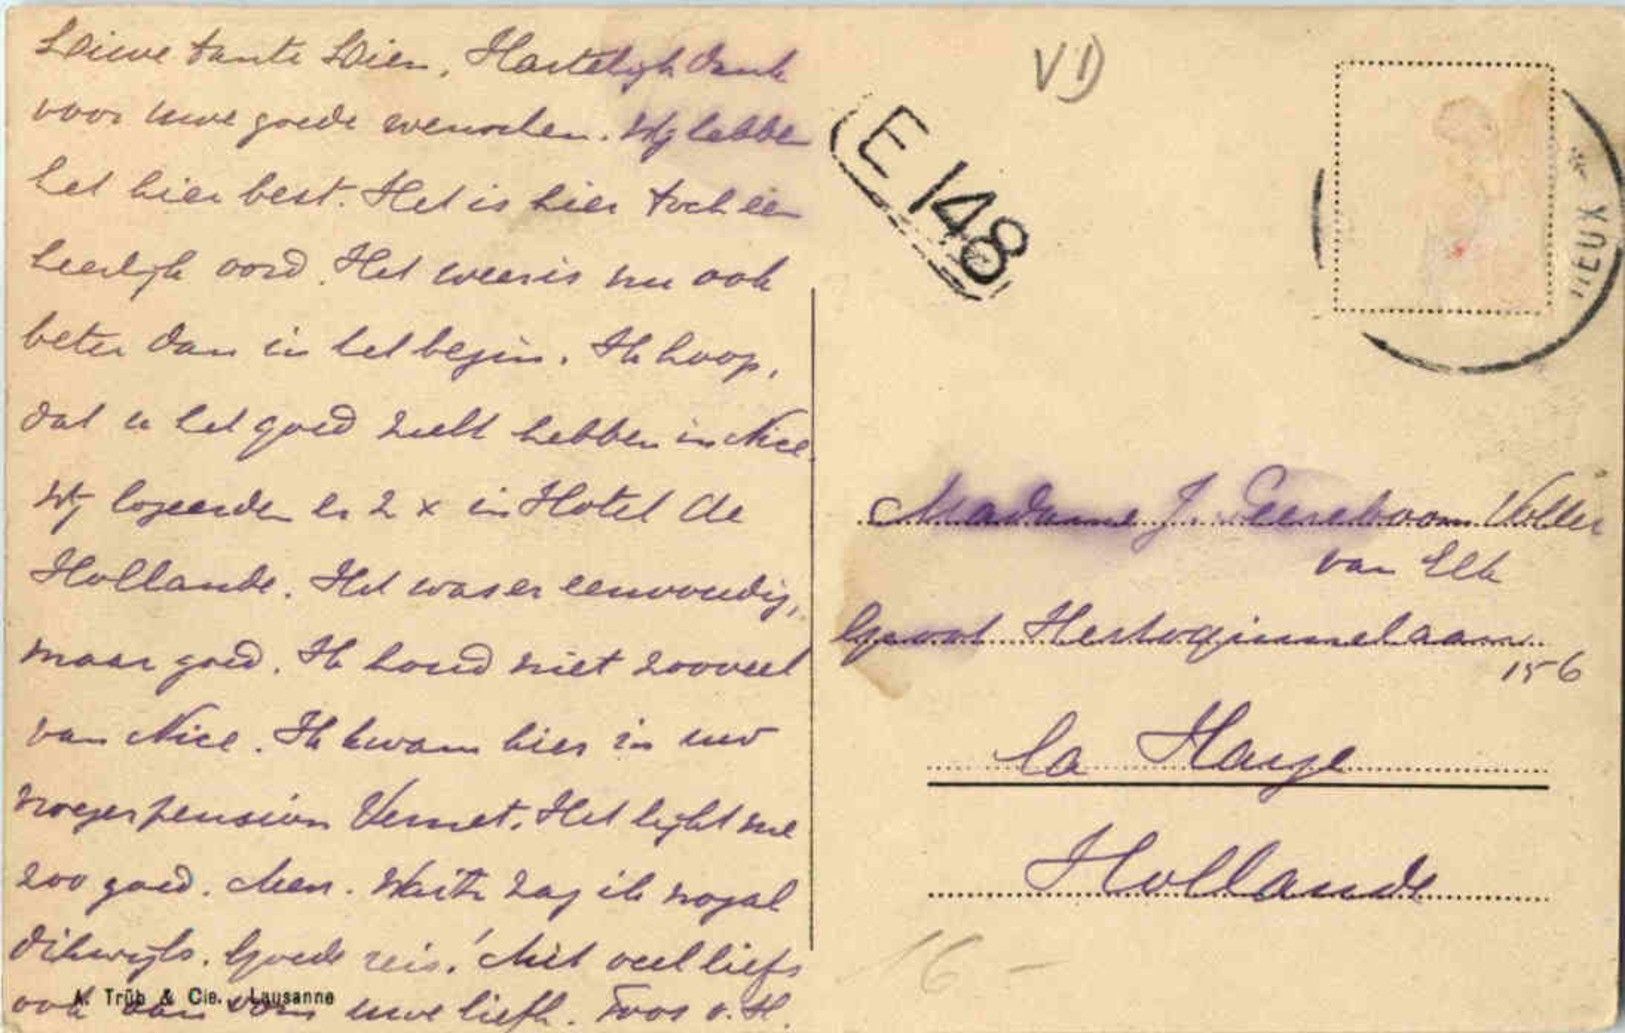 Lieve tante Dien, Hartelijk dank
voor uwe goede wenschen. Wij hebben
het hier best. Het is hier toch een
heerlijk oord. Het weer is nu ook
beter dan in het begin. Ik hoop,
dat u het goed zult hebben in Nice.
Wij logeerden er 2 x in Hotel de
Hollande. Het was er eenvoudig,
maar goed. Ik houd niet zooveel
van Nice. Ik kwam hier in uw
vroeger pension Vernet. Het lijkt me
zoo goed. Mevr. zag ik nogal
dikwijls. Goede reis! Met veel liefs
ook van uwe liefh. Toos v. H.
A. Trüb & Cie., Lausanne
VD
E 148
IEUX
Madame J. Peereboom Voller
van Elk
Groot Hertoginnelaan
156
La Haye
Hollande
16 -